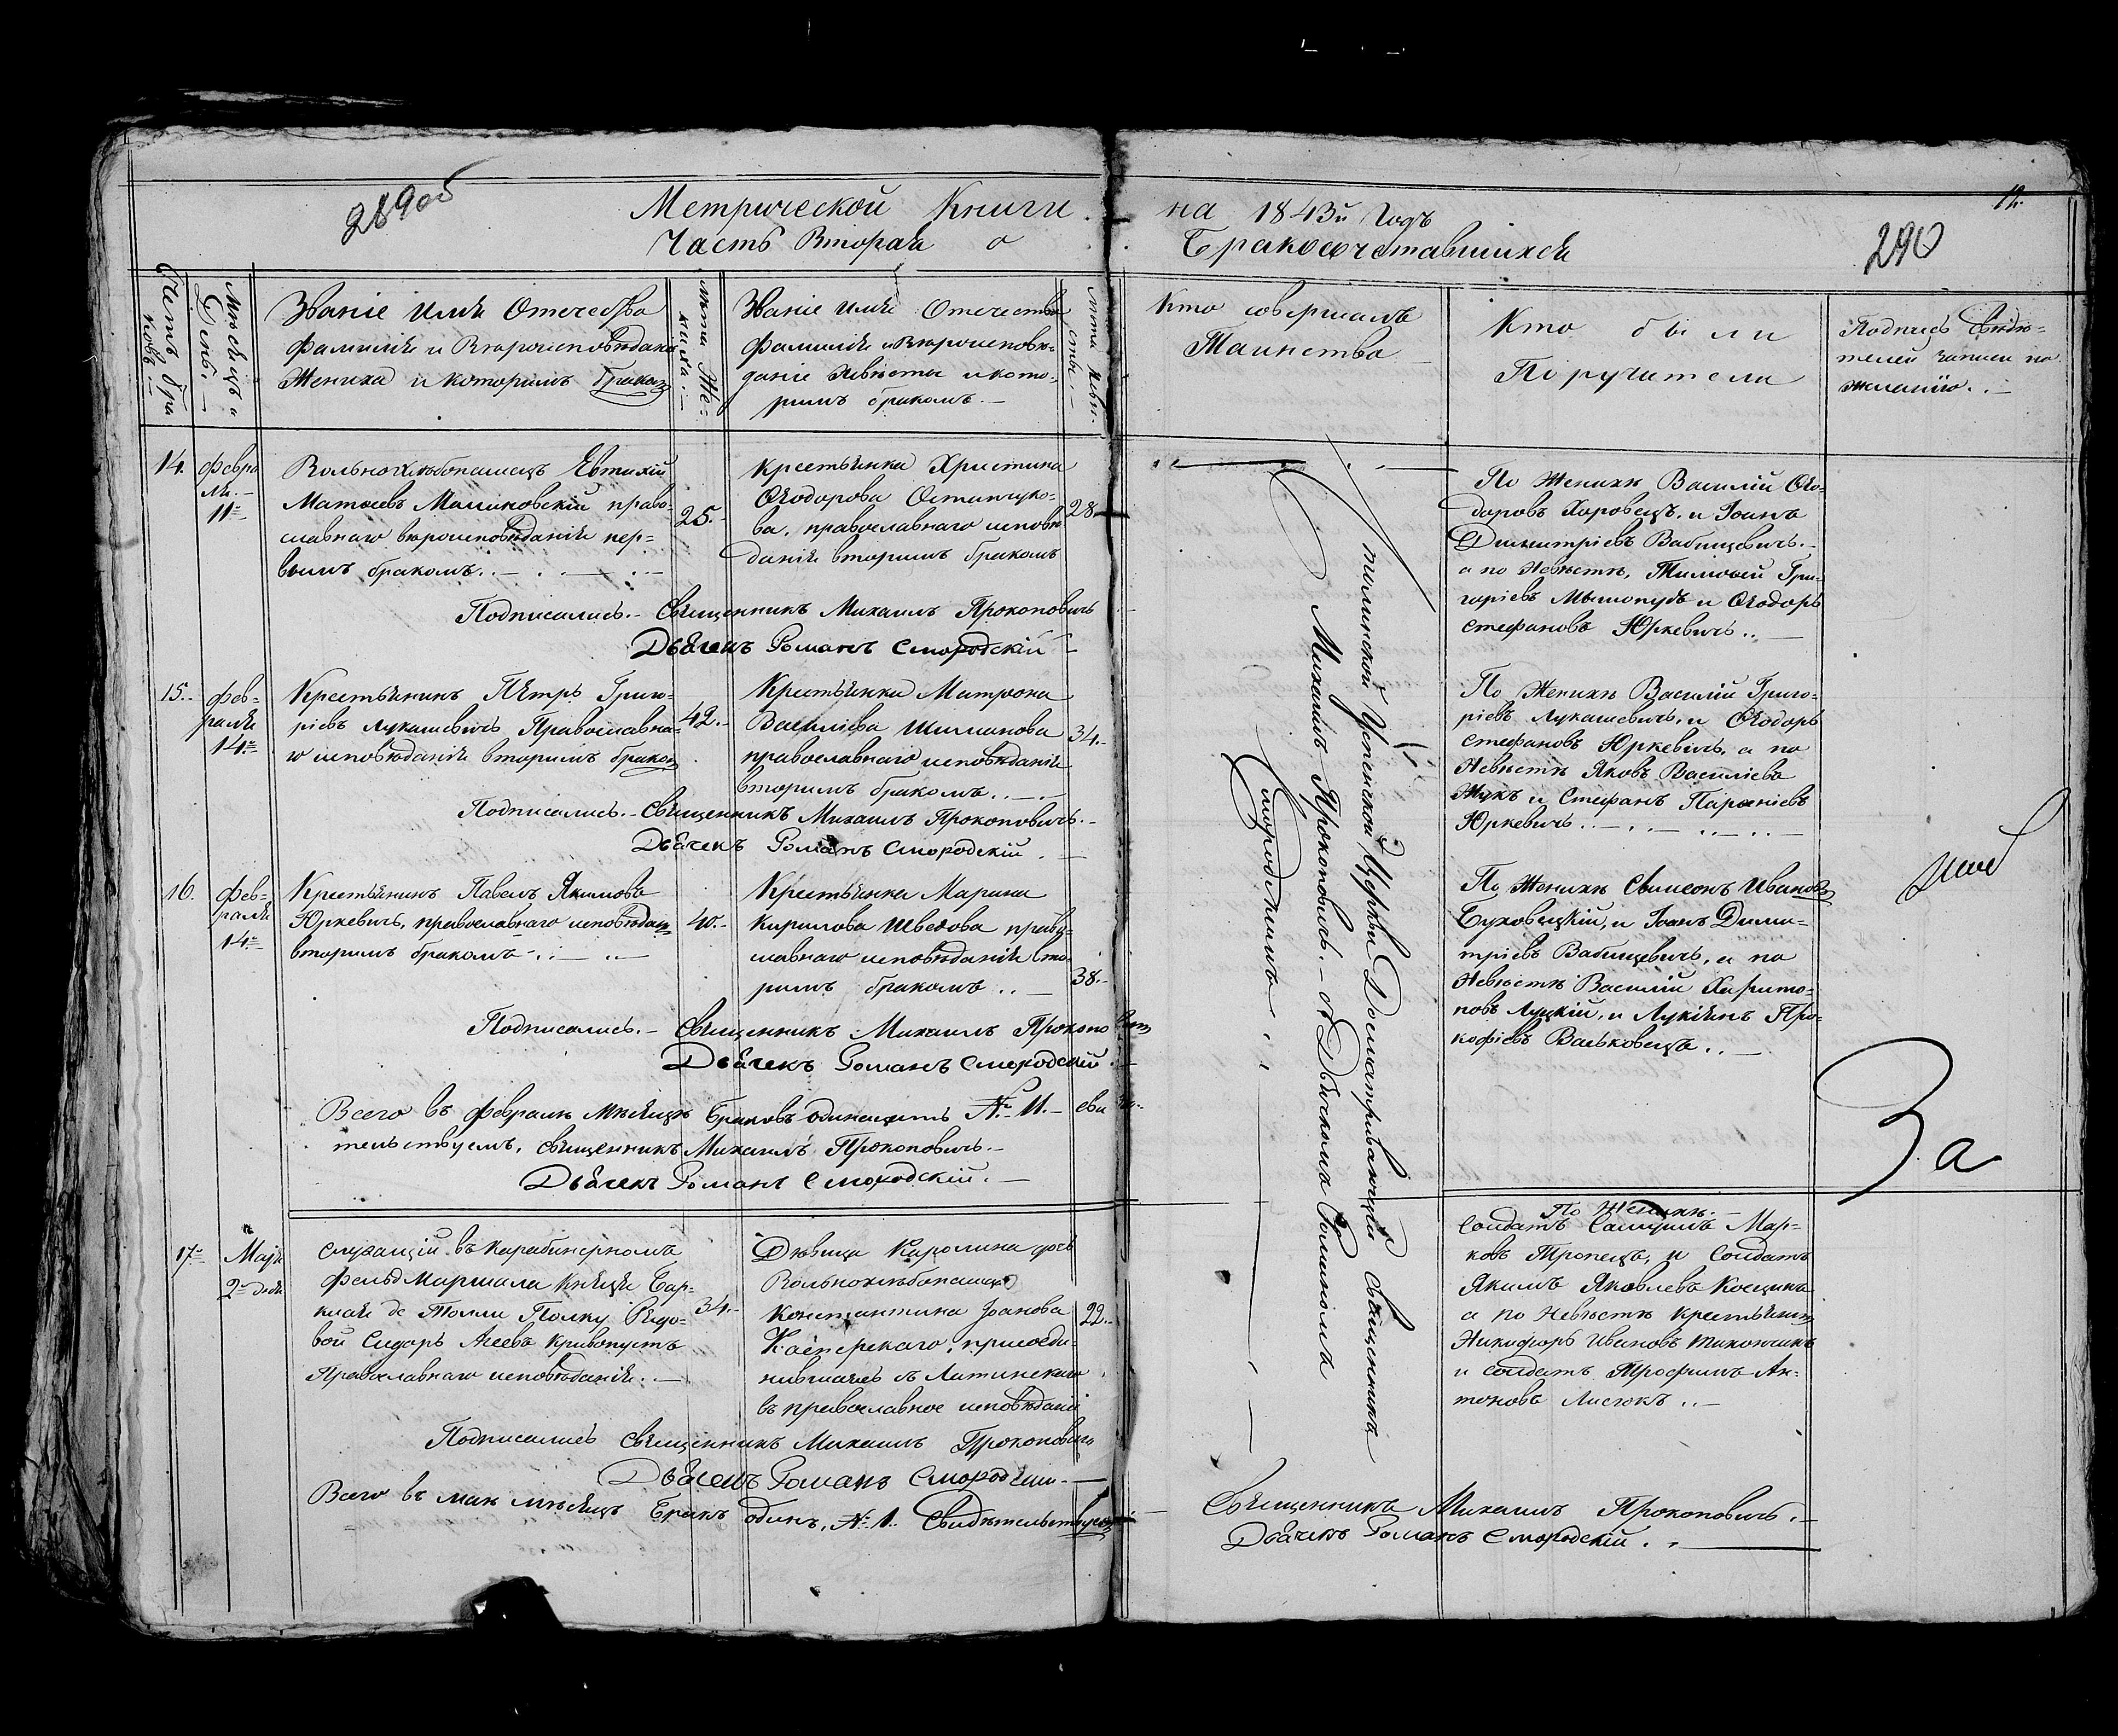 289об
Метрической Книги
Часть Вторая о
на 1843й Годъ
Бракосочетавшихся
12.
290
Счетъ бра
ковъ.
Мѣсяцъ и
День.
Званіе Имя Отечество
Фамилія и Вѣроисповѣданіе
Жениха и которимъ бракомъ
Лѣта Же=
ниха.
Званіе Имя Отечество
Фамилія и Вѣроисповѣ=
даніе Невѣсты и кото=
римъ бракомъ.
Лѣта Невѣ=
сты.
Кто совершалъ
Таинство
Кто были
Поручители
Подпись Свидѣ=
телей записи по
желанію.
14.
Февра
ля.
11
Вольнохлѣбопашецъ Евтихій
Матѳеевъ Малиновскій право=
славнаго вѣроисповѣданія пер=
вымъ бракомъ.
25.
Крестьянка Христина
Ѳеодорова Остапчуко=
ва, православнаго исповѣ
данія вторимъ бракомъ
28
По Женихѣ Василій Ѳео=
доровъ Харовецъ, и Іоанъ
Димитріевъ Вабищевичъ.
а по Невѣстѣ, Тимоѳей Гри=
горіевъ и Ѳеодоръ
Стефановъ Юркевичъ.
Подписались. Священникъ Михаилъ Прокоповичъ
Дьячекъ Романъ Смородскій
15.
Фев=
раля
14
Крестьянинъ Пётръ Григо=
ріевъ Лукашевичъ Православна=
го исповѣданія вторимъ бракомъ
42.
Крестьянка Матрона
Василіева Шиманова
православнаго исповѣданія
вторимъ бракомъ.
34.
По Женихѣ Василій Григо=
ріевъ Лукашевичъ, и Ѳеодоръ
Стефановъ Юркевичъ, а по
Невѣстѣ Яковъ Василіевъ
Жукъ и Стефанъ Парѳеніевъ
Юркевичъ.
Подписались. Священникъ Михаилъ Прокоповичъ.
Дьячекъ Романъ Смородскій.
16.
Фев=
раля
14
Крестьянинъ Павелъ Якимовъ
Юркевичъ, православнаго исповѣданія
вторимъ бракомъ
40.
Крестьянка Марина
Кирилова Шведова право=
славнаго исповѣданія вто=
римъ бракомъ.
38.
По Женихѣ Свимеонъ Ивановъ
Буховецкій, и Іоанъ Дими=
тріевъ Вабищевичъ, а по
Невѣстѣ Василій Харито=
новъ Луцкій, и Лукіянъ Про=
кофіевъ Вальковецъ.
Подписались. Священникъ Михаилъ Прокопо
Дьячекъ Романъ Смородскій.
Всего въ Февралѣ Мѣсяцѣ Браковъ одинацать №. 11. сви
тельствуемъ, священникъ Михаилъ Прокоповичъ.
Дьячекъ Романъ Смородскій.
За
17
Маія
2 дня
Служащій въ Карабинерномъ
Фельдмаршала Князя Бар=
клая де Толли Полку Рядо=
вой Сидоръ Агеевъ Кривопустъ
Православнаго исповѣданія.
34.
Дѣвица Каролина дочь
Вольнохлѣбопашца
Константина Іоанова
Каспрскаго, присоеди=
нившаяся съ Латинскаго
въ православное исповѣданіе
22.
По Женихѣ.
Солдатъ Самуилъ Мар=
ковъ Тропецъ, и Солдатъ
Якимъ Яковлевъ Косцикъ
а по Невѣстѣ крестьянинъ
Никифоръ Ивановъ
и солдатъ Трофимъ Ан=
тоновъ Лисюкъ.
Подписались священникъ Михаилъ Прокоповичъ
Дьячекъ Романъ Смородскій.
Всего въ маѣ мѣсяцѣ Бракъ одинъ, №. 1. Свидѣтельствуемъ
Священникъ Михаилъ Прокоповичъ.
Дьячекъ Романъ Смородскій.
Успенской Церкви Досматривающій Священникъ
Михаилъ Прокоповичъ. съ Дьячкомъ Романомъ
Смородскимъ